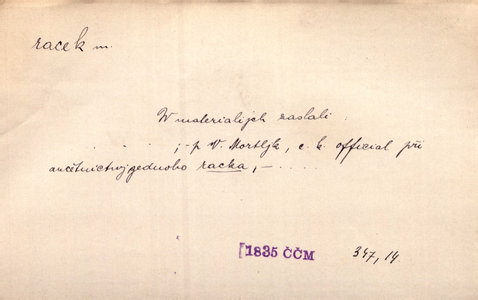 racek m.
W materialijch zaslali :
. . . . ; - p W. Mortljk, c. k. official při
aučetnictwj gednoho racka, - . . . .
[1835 ČČM 347, 14